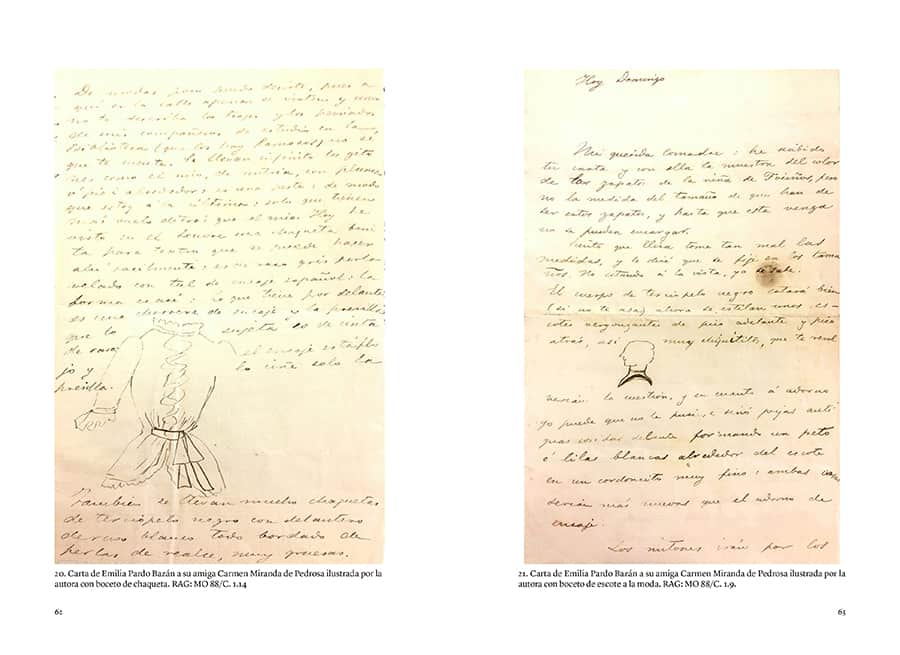 De modas poco puedo decirte, pues a
quí en la calle apenas se visten y como
no te describa los trajes y los peinados
de mis compañeros de estudio en la
Biblioteca (que los hay famosos) no sé
que te cuente. Se llevan infinito los gita
nos como el mio, de nutria, con plumas
ó pié i alrededor es una cinta: de modo
que estoy á la última: solo que tienen
vuelo detrás que el mio. Hoy he
visto en el Louvre una chaqueta boni
ta para teatro que se puede hacer
ahí facilmente: es de raso gris perla
velado con tul de encaje español: la
forma es así: lo que tiene por delante
es una chorrera de encaje y la presilla
que lo sujeta es de cinta
de raso el encaje está flo
jo y lo ciñe solo la
presilla.
Tambien se llevan mucho chaquetas
de terciopelo negro con delantero
de raso blanco todo bordado de
perlas de realce, muy gruesas.
20. Carta de Emilia Pardo Bazán a su amiga Carmen Miranda de Pedrosa ilustrada por la
autora con boceto de chaqueta. RAG: MO 88/C. 1.14
62
Hoy Domingo
Mi querida comadre: he recibido
tu carta y con ella la muestra del color
de los zapatos de la niña de pero
no la medida del tamaño de que han de
ser estos zapatos, y hasta que esta venga
no se pueden encargar.
Siento que Elisa tome tan mal las
medidas, y le diré que se fije en los tama
ños. No estando á la vista, ya se sabe.
El cuerpo de terciopelo negro estará bien
(si no te asa) ahora se estilan unos es-
cotes vergonzantes de pico adelante y pico
atrás, así muy chiquititos, que te resol
verían la cuestión, y en cuanto á adorno
yo puede que no le pusiese sinó rosas anti
guas cosidas delante formando un peto
ó lilas blancas alrededor del escote
en un cordoncito muy fino: ambas cosas
serían más nuevas que el adorno de
encaje.
Los mitones irán por los
21. Carta de Emilia Pardo Bazán a su amiga Carmen Miranda de Pedrosa ilustrada por la
autora con boceto de escote a la moda. RAG: MO 88/C. 1.9.
63